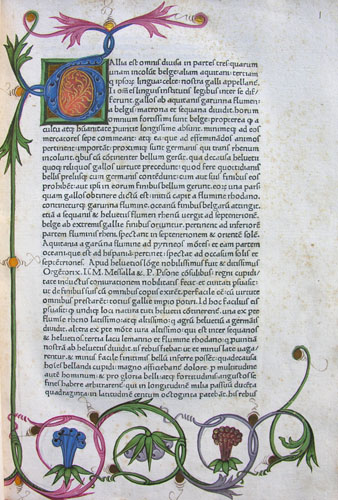 Gallia est omnis diuisa in partes tres: quarum
unam incolũt belge: aliam aquitani: tertiam
q ipsoꝝ lingua celte: nostra galli appellant̃.
Hi oẽs lingua institutis legibus inter se dif-
ferunt. gallos ab aquitanis garunna flumen:
a belgis matrona et sequana diuidit. horum
omnium fortissimi sunt belge: propterea q a
cultu atq humanitate puincie longissime absunt. minimeq ad eos
mercatores sepe commeant: atq ea que ad effeminãdos animos
pertinent important: proximiq sunt germanis qui trans rhenum
incolunt. quibus cũ cõtinenter bellum gerũt. qua de causa heluetii
quoq reliquos gallos uirtute precedunt: quod fere quotidianis
bellis preliisq cum germanis contẽdunt: cum aut suis finibus eos
prohibẽt: aut ipsi in eorum finibus bellum gerunt. eoꝝ una pars
quam gallos obtinere dictũ est: initiũ capit a flumine rhodano.
contineturq garunna flumine. oceano: finibus belgarum. attingit
etiã a sequanis &amp; heluetiis flumen rhenũ. uergit ad septentrionẽ.
Belge ab extremis gallie finibus oriuntur. pertinent ad inferiorẽ
partem fluminis rheni. spectant in septentrionem &amp; orientẽ solẽ.
Aquitania a garũna flumine ad pyrineos mõtes: et eam partem
oceani: que est ad hispaniã: pertinet: spectat ad occasum solis et
septẽtriones. Apud heluetios lõge nobilissimus fuit &amp; ditissimus
Orgetorix. is M. Messalla &amp; P. Pisone cõsulibus: regni cupidi-
tate inductus coniurationem nobilitatis fecit: et ciuitati psuasit
ut de finibus suis cũ omnibus copiis exirẽt: perfacile eẽ: cũ uirtute
omnibus prestarẽt: totius gallie impio potiri. Id hoc facilius eis
psuasit: q undiq loci natura tuti heluetii cõtinentur. una ex pte
flumine rheno latissimo: atq altissimo: q agrũ heluetiũ a germãis
diuidit. altera ex pte mõte iura altissimo: qui est inter sequanos
&amp; heluetios. tertia lacu lemanno &amp; flumine rhodano: q puinciã
nostrã ab heluetiis diuidit. his rebus fiebat ut et minus late uaga-
rentur. &amp; minus facile finitimis bellũ inferre possẽt: qua de causa
hoies bellandi cupidi magno afficiebant̃ dolore. p multitudine
autẽ hominum &amp; pro gloria belli atq fortitudinis: angustos se
fines habere arbitrarent̃. qui in longitudinẽ milia passuũ ducẽta
quadraginta: in latitudinẽ centum octoginta patebãt. his rebus